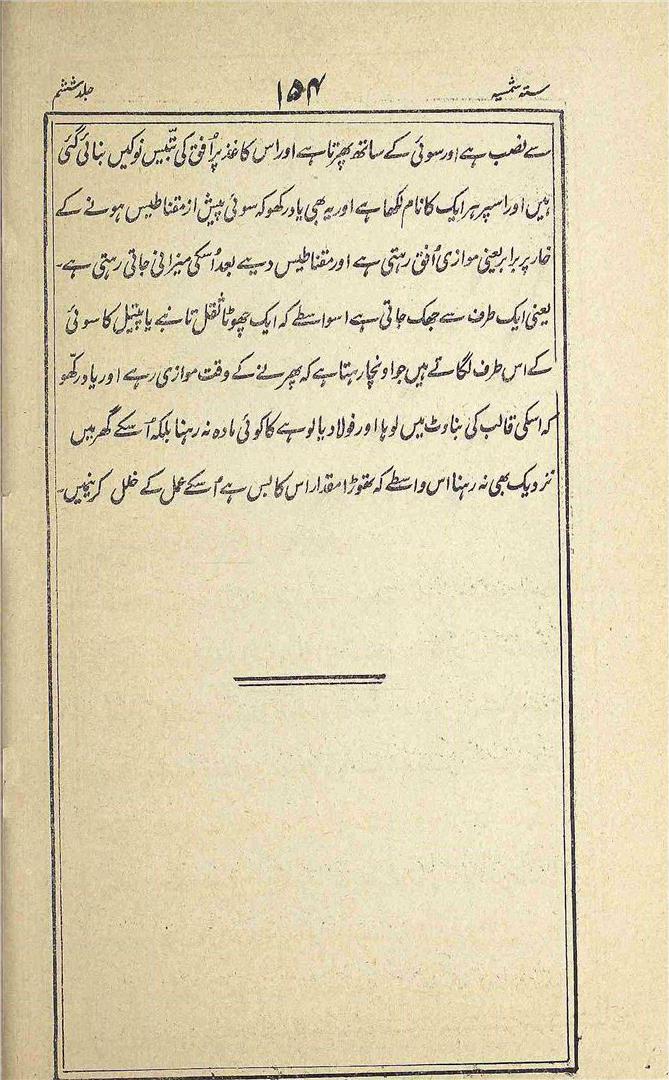 ستہ شمسیہ ۱۵۴ جلد ششم
سے نصب ہے اور سوئی کے ساتھ پھرتا ہے اور اس کاغذ پر اُفق کی بتّیس نوکیں بنائی گئی
ہیں اور اسپر ہر ایک کا نام لکھا ہے اور یہ بھی یاد رکھو کہ سوئی پیش از مقناطیس ہونے کے
خار پر برابر یعنی موازی اُفق رہتی ہے اور مقناطیس دیے بعد اُسکی میزانی جاتی رہتی ہے۔
یعنی ایک طرف سے جھک جاتی ہے اسواسطے کہ ایک چھوٹا ثقل تانبے یا پیتل کا سوئی
کے اس طرف لگاتے ہیں جو اونچا رہتا ہے کہ پھرنے کے وقت موازی رہے اور یاد رکھّو
کہ اسکی قالب کی بناوٹ میں لوہا اور فولاد یا لوہے کا کوئی مادہ نہ رہنا بلکہ اُسکے گھر میں
نزدیک بھی نہ رہنا اس واسطے کہ تھوڑا مقدار اس کا بس ہے اُسکے عمل کے خلل کرنیمیں۔